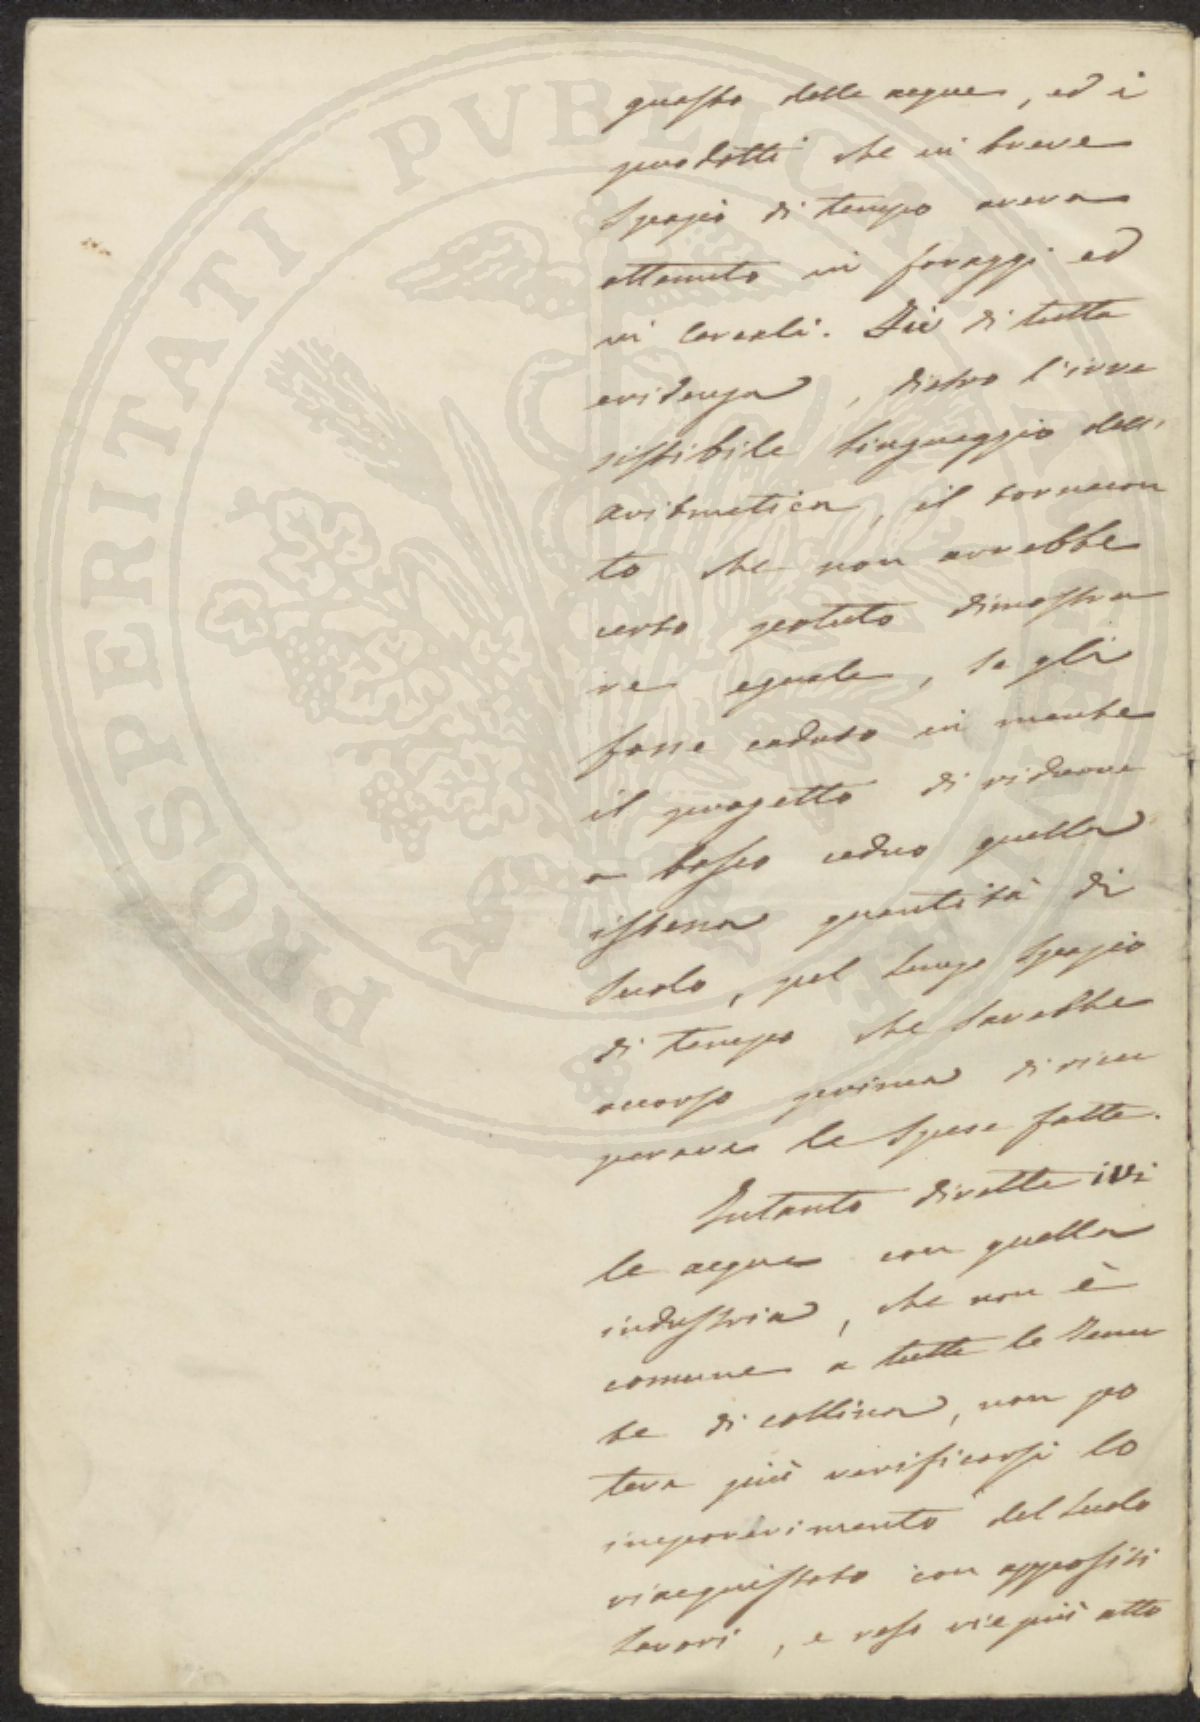 PROSPERITATI PVBLICAE AVGENDAE
questo delle acque, ed i
prodotti che in breve
spazio di tempo aveva
ottenuto in foraggi ed
in cereali. Fu di tutta
evidenza, dietro l'irre
sistibile linguaggio dell'
aritmetica, il tornacon
to che non avrebbe
certo potuto dimostra
re eguale, se gli
fosse caduto in mente
il progetto di ridurre
a bosco ceduo quella
istessa quantità di
suolo, pel lungo spazio
di tempo che sarebbe
accorso prima di ricu
perare le spese fatte.
Intanto dirette ivi
le acque con quella
industria, che non è
comune a tutte le Tenu
te di collina, non po
teva più verificarsi lo
impoverimento del suolo
riacquistato con appositi
lavori, e reso viepiù atto